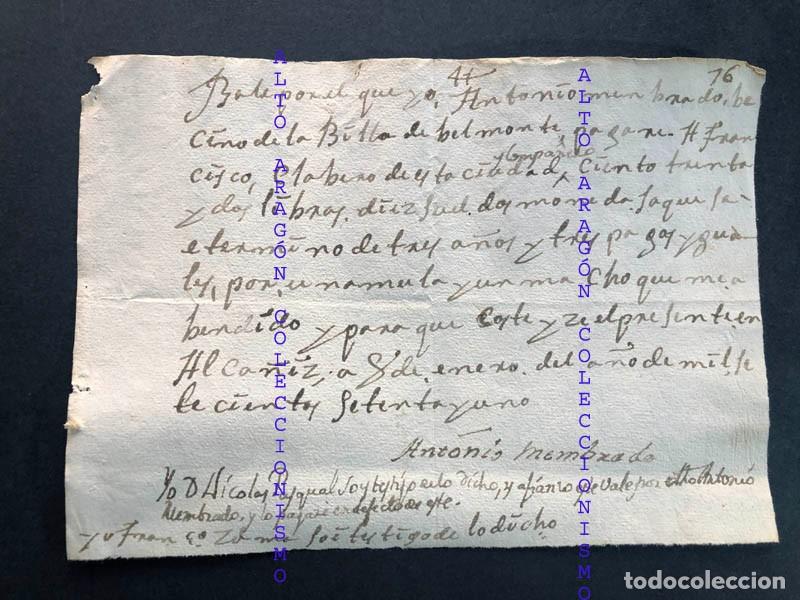 44 76
Bale por el que yo, Antonio membrado, be
cino de la Billa de belmonte, pagare. A Fran
y Compañia
cisco, Clabero de esta ciudad, ciento trenta
y dos libras. diez sud. dos moneda Jaquesa
e termino de tres años y tres pagas ygua
les, por, una mula y un macho que me a
bendido y para que Coste yze el presente en
Alcañiz, a 8 de. enero. del año de mil. se
te cientos Setenta y uno
Antonio Membrado
Yo D Nicolas Pasqual Soy testigo de lo dicho, y afianzo que vale por dho Antonio
Membrado, y lo pagare en defecto de este.
yo Franco so i testigo de lo dicho
ALTO ARAGÓN COLECCIONISMO
ALTO ARAGÓN COLECCIONISMO
todocoleccion